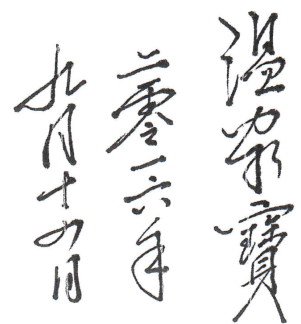 温家寶
二零一六年
九月十四日